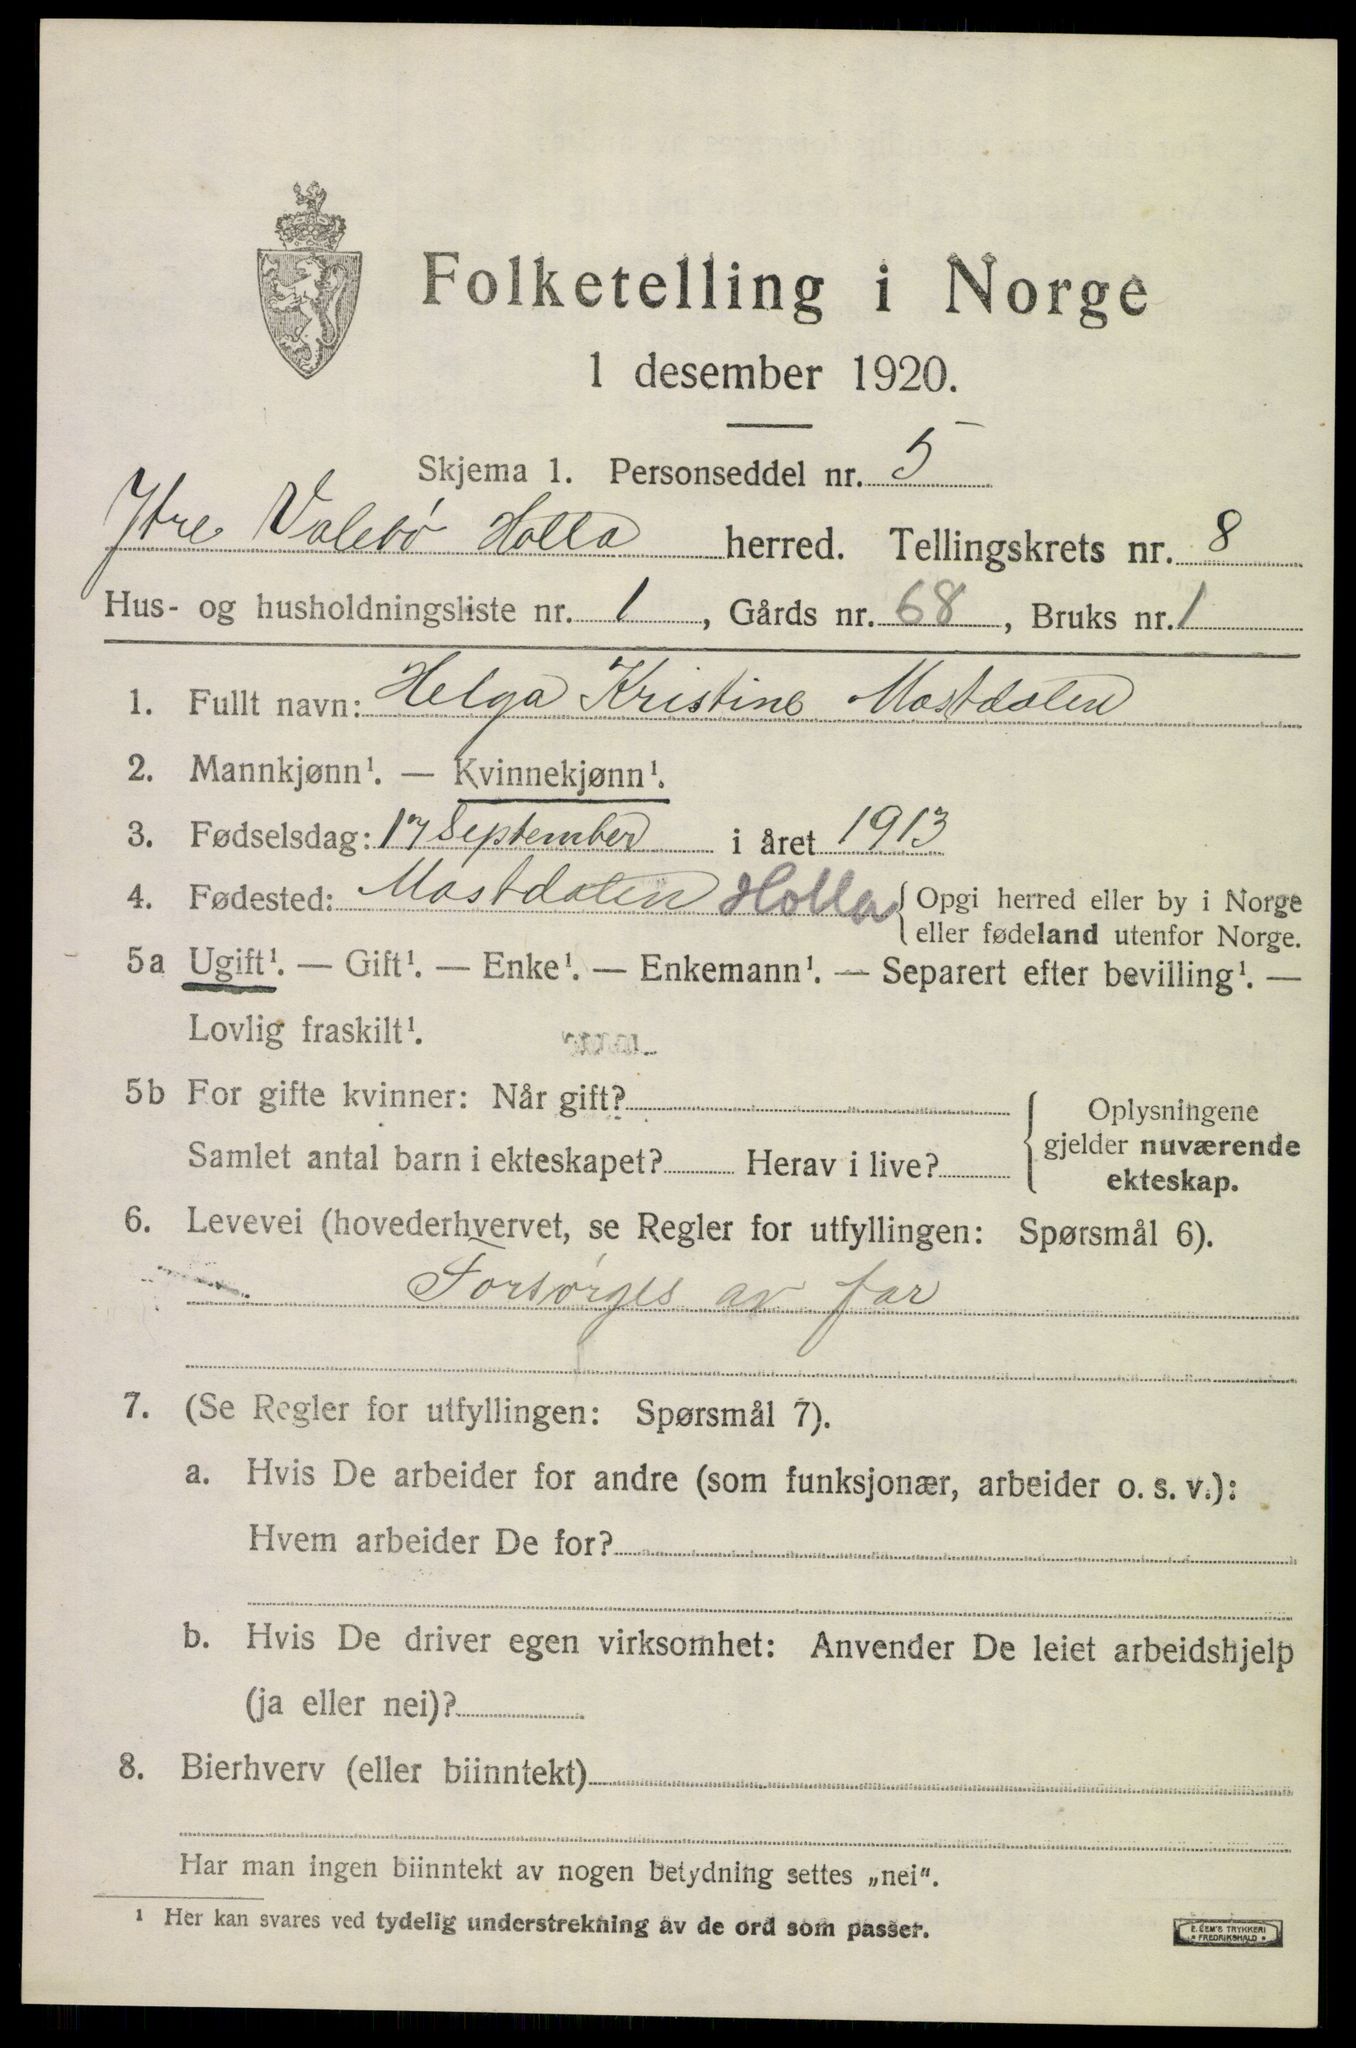 Folketelling i Norge
1 desember 1920.
Skjema 1. Personseddel nr. 5
Ytre Valebø Holla herred. Tellingskrets nr. 8
Hus- og husholdningsliste nr. 1, Gårds nr. 68, Bruks nr. 1
1. Fullt navn: Helga Kristine Mastdalen
2. Mannkjønn¹. — Kvinnekjønn¹.
3. Fødselsdag: 17 September i året 1913
4. Fødested: Mastdalen Holla { Opgi herred eller by i Norge
eller fødeland utenfor Norge.
5a Ugift¹. — Gift¹. — Enke¹. — Enkemann¹. — Separert efter bevilling¹. —
Lovlig fraskilt¹.
5b For gifte kvinner: Når gift?
Samlet antal barn i ekteskapet? Herav i live?
{ Oplysningene
gjelder nuværende
ekteskap.
6. Levevei (hovederhvervet, se Regler for utfyllingen: Spørsmål 6).
Forsørges av far
7. (Se Regler for utfyllingen: Spørsmål 7).
a. Hvis De arbeider for andre (som funksjonær, arbeider o. s. v.):
Hvem arbeider De for?
b. Hvis De driver egen virksomhet: Anvender De leiet arbeidshjelp
(ja eller nei)?
8. Bierhverv (eller biinntekt)
Har man ingen biinntekt av nogen betydning settes „nei".
¹ Her kan svares ved tydelig understrekning av de ord som passer.
E. SEM'S TRYKKERI
* FREDRIKSHALD *